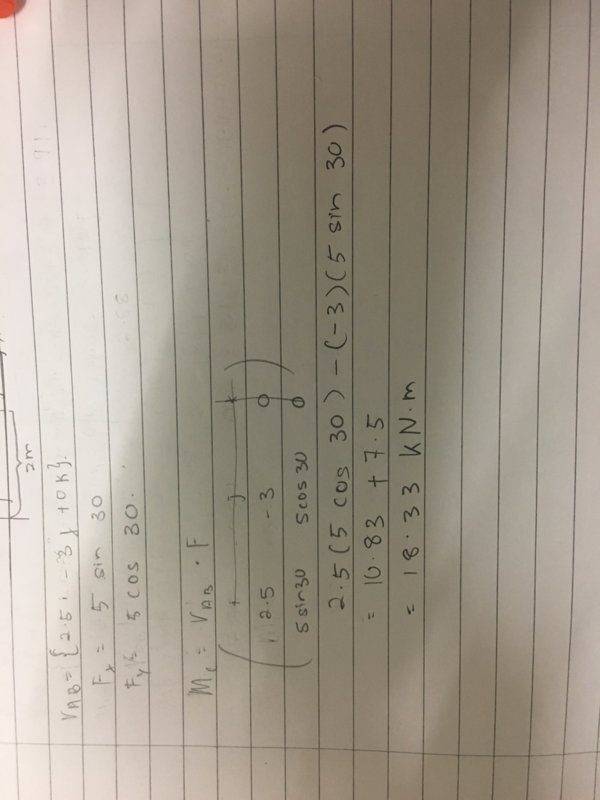 2m
r_AB = {2.5i - 3j + 0k}.
F_x = 5 sin 30
F_y = 5 cos 30.
M_c = r_AB · F
i j k
2.5 -3 0
5 sin30 5 cos 30 0
2.5 (5 cos 30) - (-3)(5 sin 30)
= 10.83 + 7.5
= 18.33 kN.m